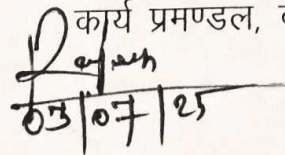 कार्य प्रमण्डल,
03/07/25